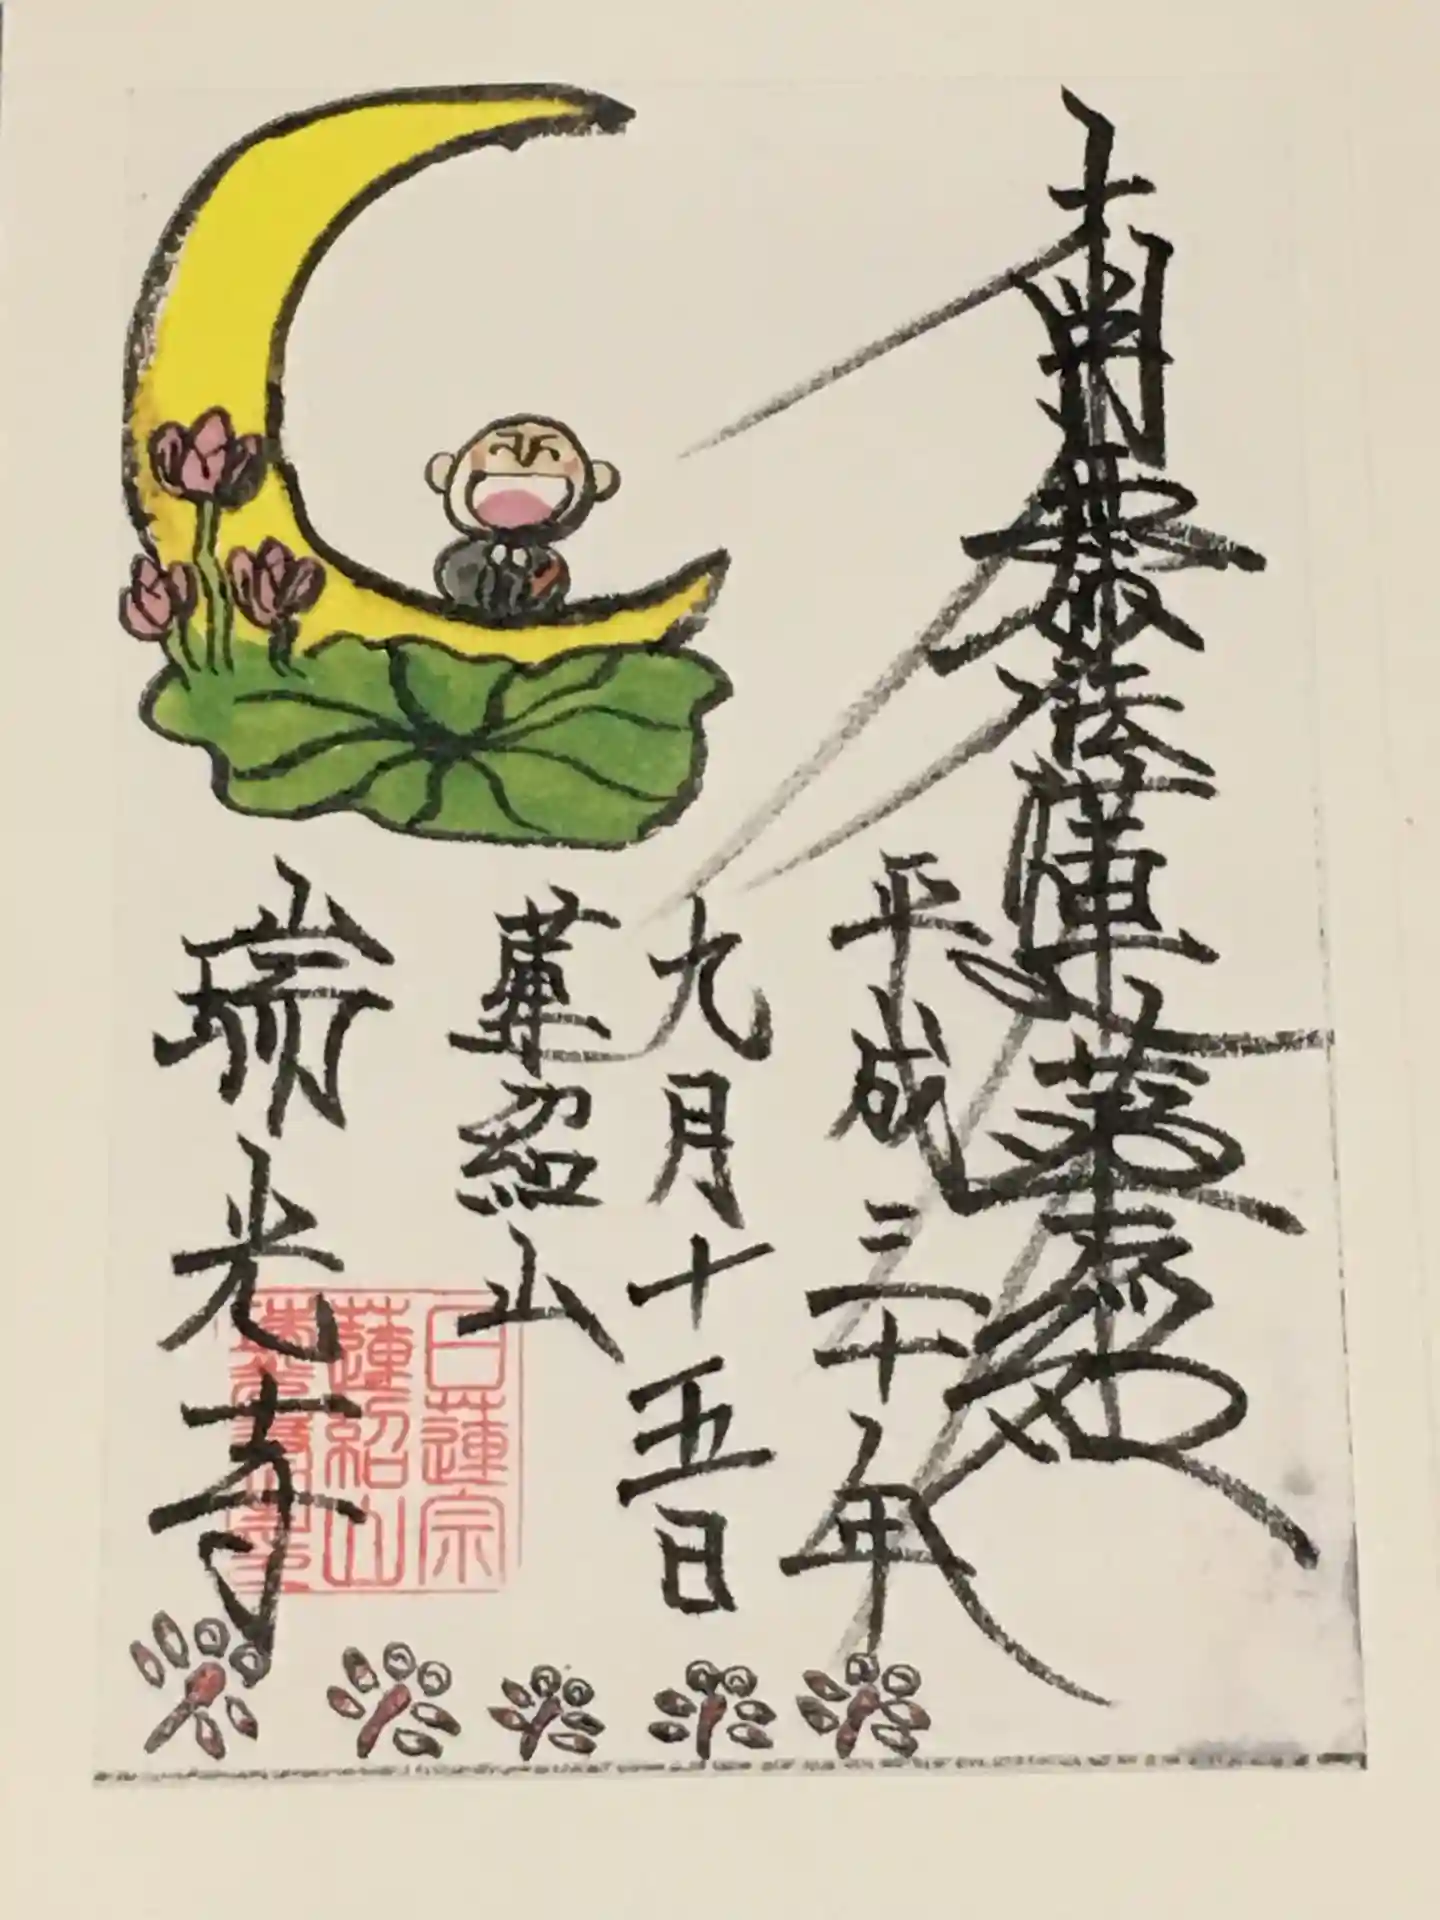 南無妙法蓮華経
平成三十年
九月十五日
蓮紹山
瑞光寺
日蓮宗
蓮紹山